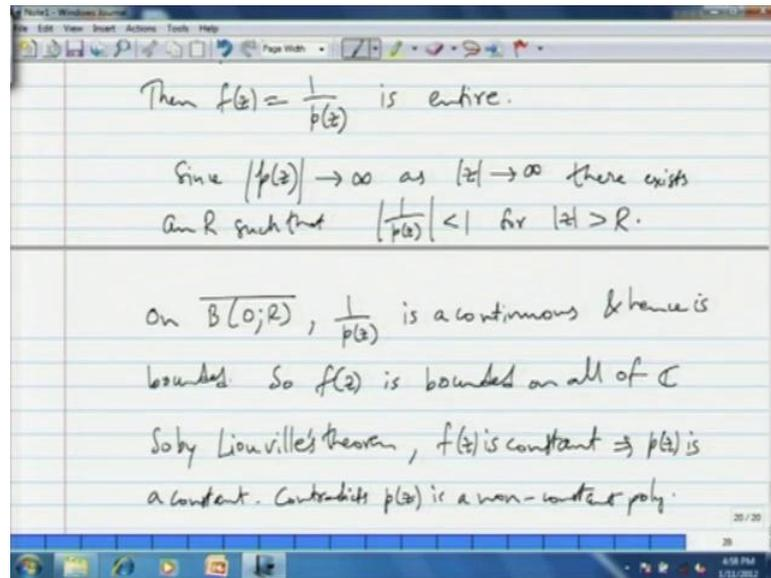 Note1 - Windows Journal
File Edit View Insert Actions Tools Help
Page Width
Then f(z) = 1/p(z) is entire.
Since |p(z)| → ∞ as |z| → ∞ there exists
an R such that |1/p(z)| < 1 for |z| > R.
On \overline{B(0;R)}, 1/p(z) is a continuous & hence is
bounded. So f(z) is bounded on all of ℂ
So by Liouville's theorem, f(z) is constant ⇒ p(z) is
a constant. Contradicts p(z) is a non-constant poly.
20 / 20
4:58 PM
1/11/2012